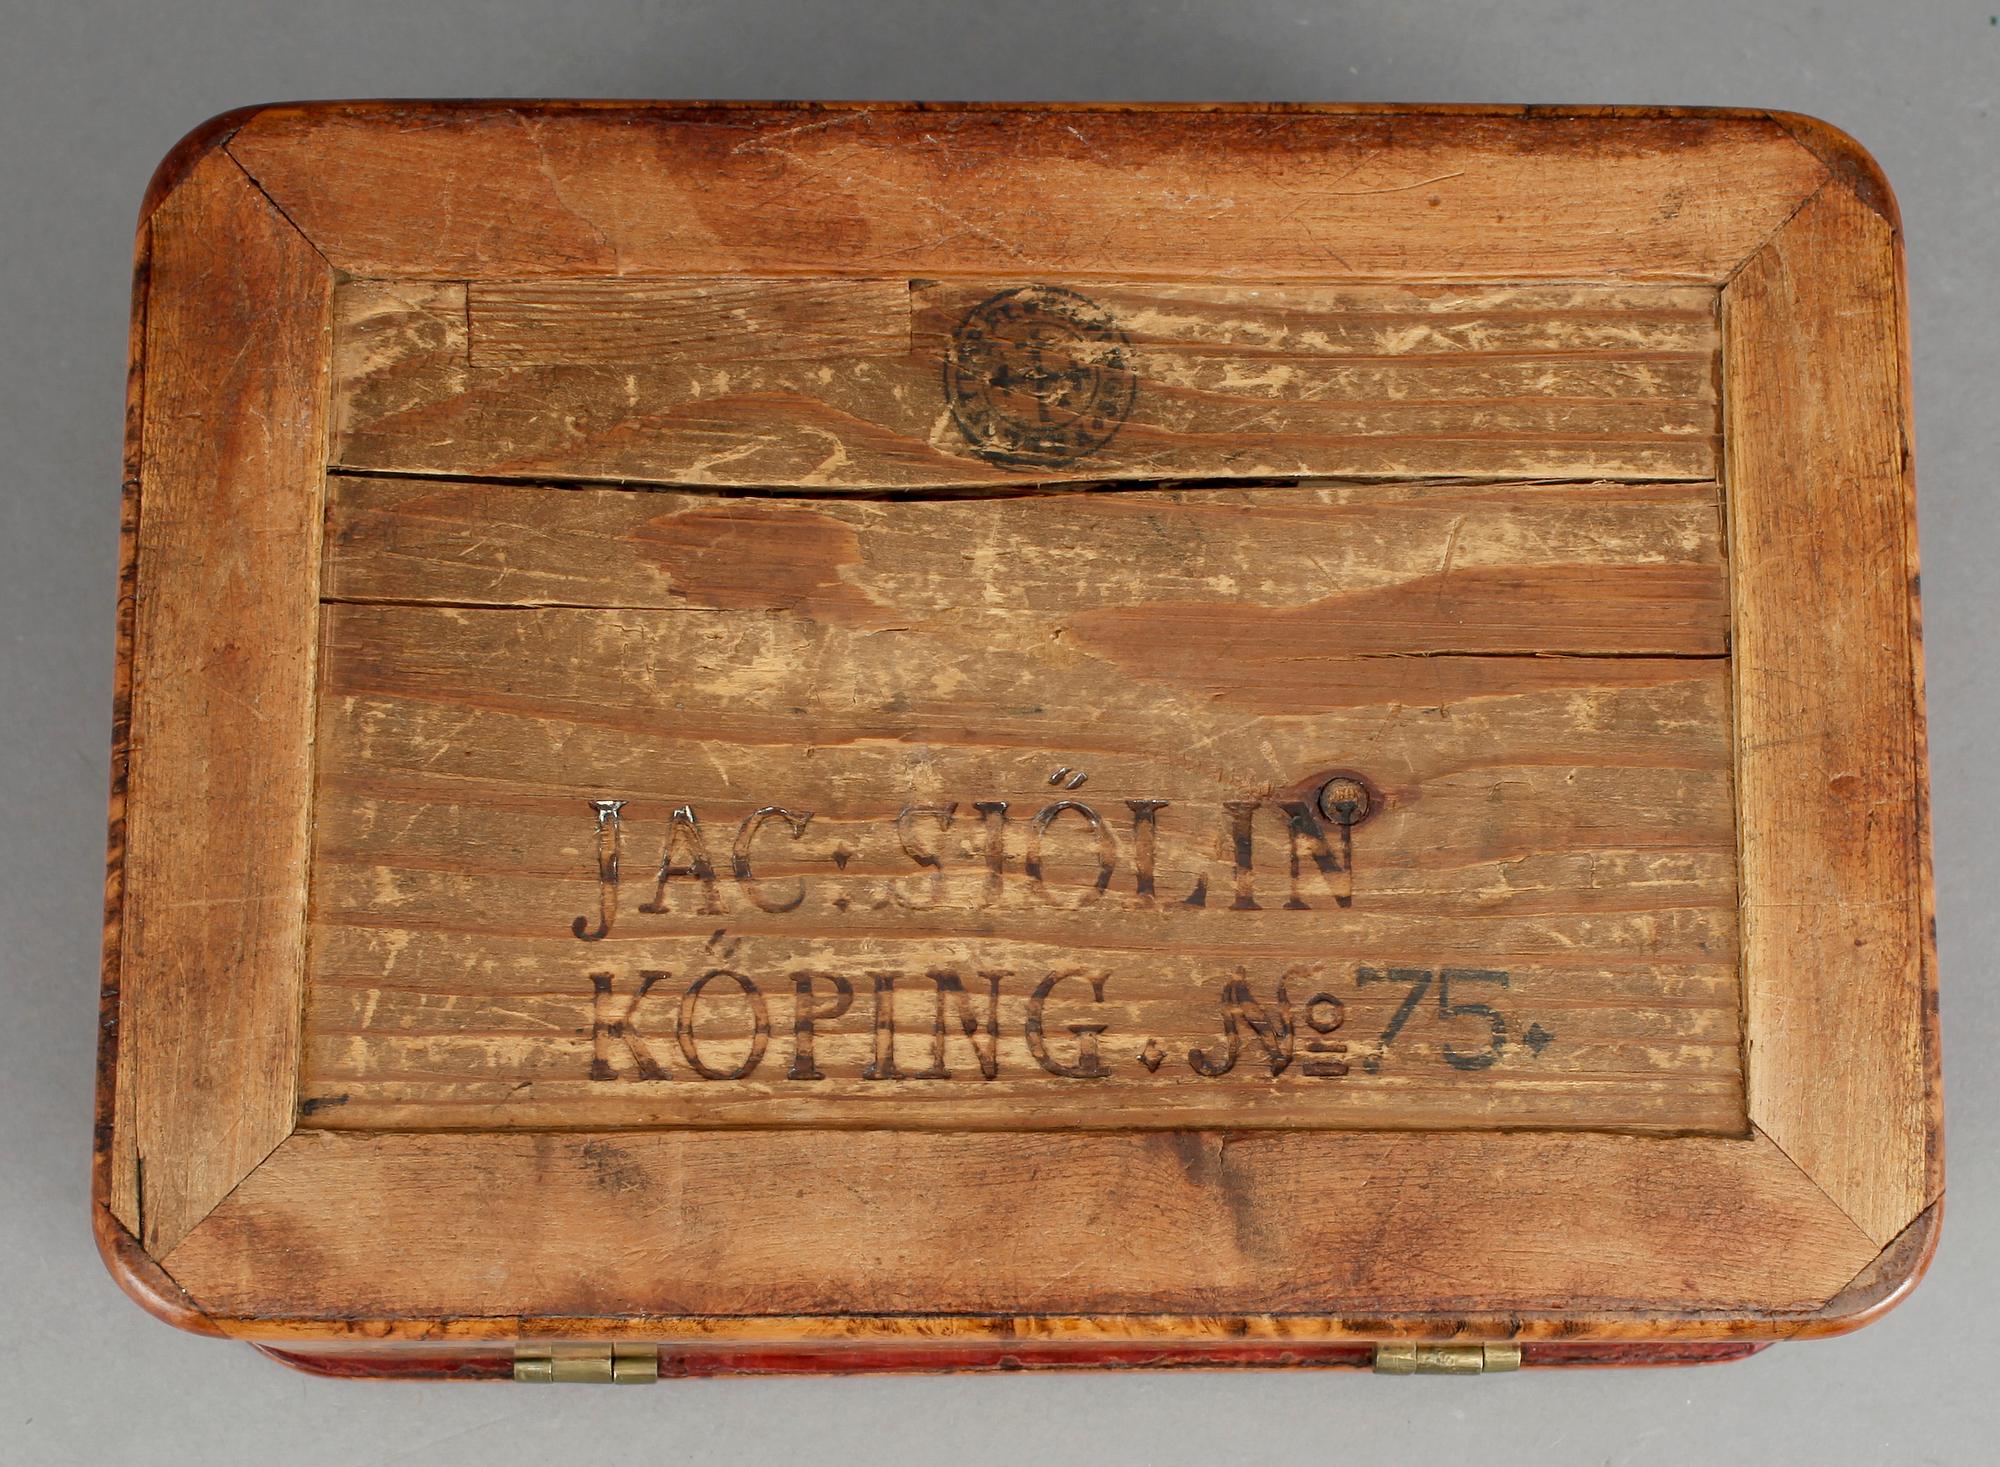 JAC. SIÖLIN
KÖPING. No 75.